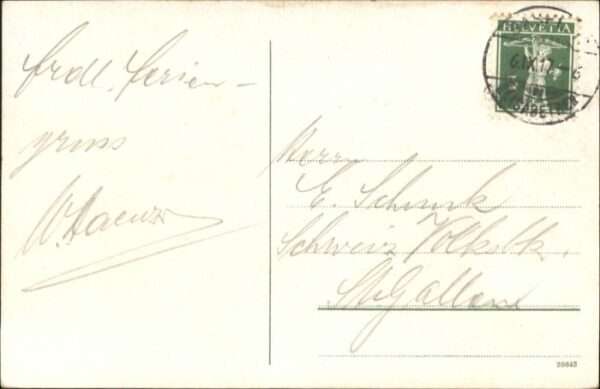 frdl. Ferien-
gruss
W. Haenzi
HELVETIA
5
6.IX.1
Herrn
E. Schenk
Schweiz. Volksbk.
St. Gallen
20643